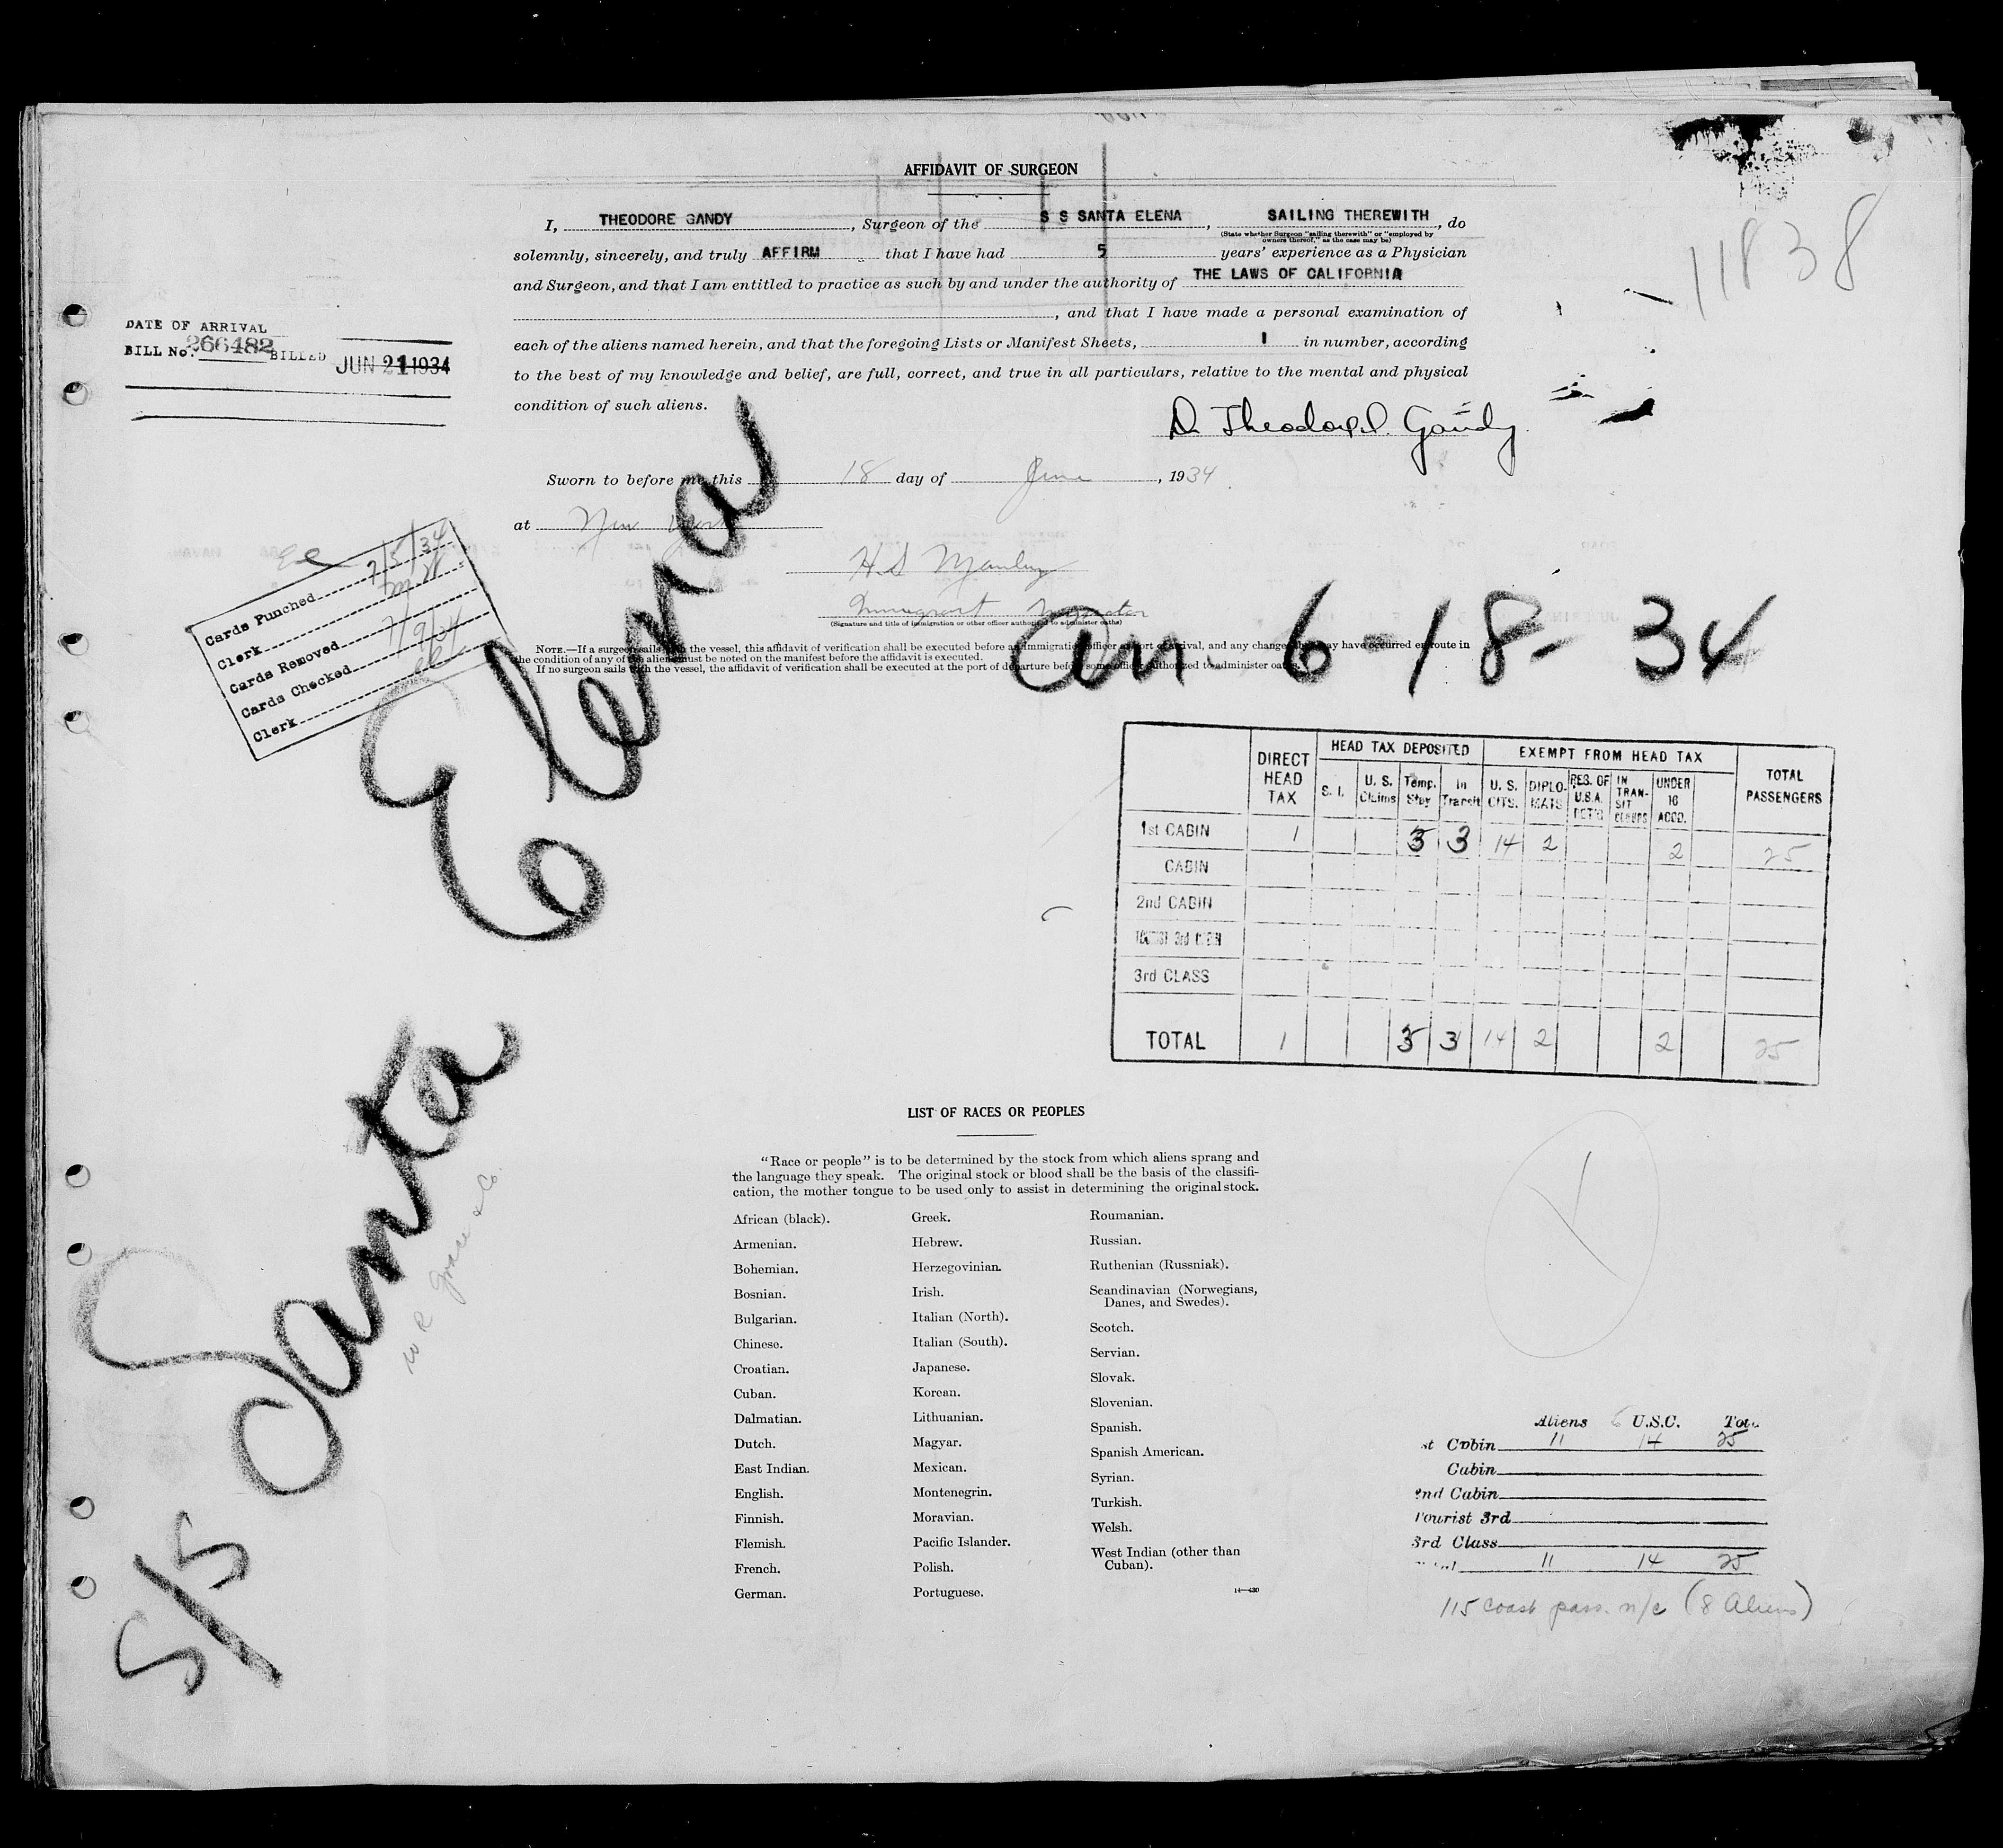 AFFIDAVIT OF SURGEON
I, THEODORE GANDY, Surgeon of the S S SANTA ELENA, SAILING THEREWITH, do
(State whether Surgeon "sailing therewith" or "employed by owners thereof," as the case may be)
solemnly, sincerely, and truly AFFIRM that I have had 5 years' experience as a Physician
and Surgeon, and that I am entitled to practice as such by and under the authority of THE LAWS OF CALIFORNIA
, and that I have made a personal examination of
each of the aliens named herein, and that the foregoing Lists or Manifest Sheets, 1 in number, according
to the best of my knowledge and belief, are full, correct, and true in all particulars, relative to the mental and physical
condition of such aliens.
11838
DATE OF ARRIVAL
BILL No. 266482 BILLED JUN 21 1934
Dr. Theodore Gandy
Sworn to before me this 18 day of June, 1934
at New York
H.S.
Immigrant Inspector
(Signature and title of immigration or other officer authorized to administer oaths)
NOTE.—If a surgeon sails with the vessel, this affidavit of verification shall be executed before an immigration officer at port of arrival, and any changes that may have occurred en route in
the condition of any of the aliens must be noted on the manifest before the affidavit is executed.
If no surgeon sails with the vessel, the affidavit of verification shall be executed at the port of departure before some officer authorized to administer oaths.
Cards Punched 7/5/34
Clerk
Cards Removed
Cards Checked 7/9/34
Clerk
am 6-18-34
S/S Santa Elena
W R Grace & Co.
DIRECT HEAD TAX
HEAD TAX DEPOSITED
EXEMPT FROM HEAD TAX
TOTAL PASSENGERS
S. I. U. S. Claims Temp. Stay In Transit U. S. CITS. DIPLO-MATS RES. OF U.S.A. RET'G IN TRAN-SIT UNDER 16 ACCD.
1st CABIN 1 3 3 14 2 2 25
CABIN
2nd CABIN
TOURIST 3rd CABIN
3rd CLASS
TOTAL 1 3 3 14 2 2 25
LIST OF RACES OR PEOPLES
"Race or people" is to be determined by the stock from which aliens sprang and
the language they speak. The original stock or blood shall be the basis of the classifi-
cation, the mother tongue to be used only to assist in determining the original stock.
African (black).
Armenian.
Bohemian.
Bosnian.
Bulgarian.
Chinese.
Croatian.
Cuban.
Dalmatian.
Dutch.
East Indian.
English.
Finnish.
Flemish.
French.
German.
Greek.
Hebrew.
Herzegovinian.
Irish.
Italian (North).
Italian (South).
Japanese.
Korean.
Lithuanian.
Magyar.
Mexican.
Montenegrin.
Moravian.
Pacific Islander.
Polish.
Portuguese.
Roumanian.
Russian.
Ruthenian (Russniak).
Scandinavian (Norwegians,
Danes, and Swedes).
Scotch.
Servian.
Slovak.
Slovenian.
Spanish.
Spanish American.
Syrian.
Turkish.
Welsh.
West Indian (other than
Cuban).
14—430
Aliens U.S.C. Tot
st Cabin 11 14 25
Cabin
2nd Cabin
Tourist 3rd
3rd Class
11 14 25
115 coast pass. n/c (8 Aliens)